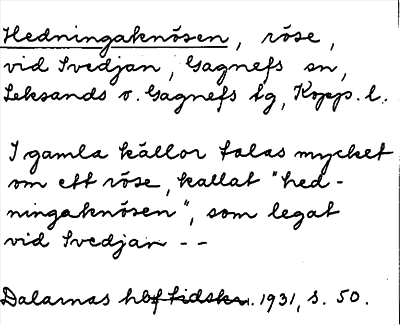 Hedningaknösen, röse,
vid Svedjan, Gagnefs sn,
Leksands o. Gagnefs tg, Kopp. l.
I gamla källor talas mycket
om ett röse, kallat "hed-
ningaknösen", som legat
vid Svedjan - -
Dalarnas hbf tidskr. 1931, s. 50.